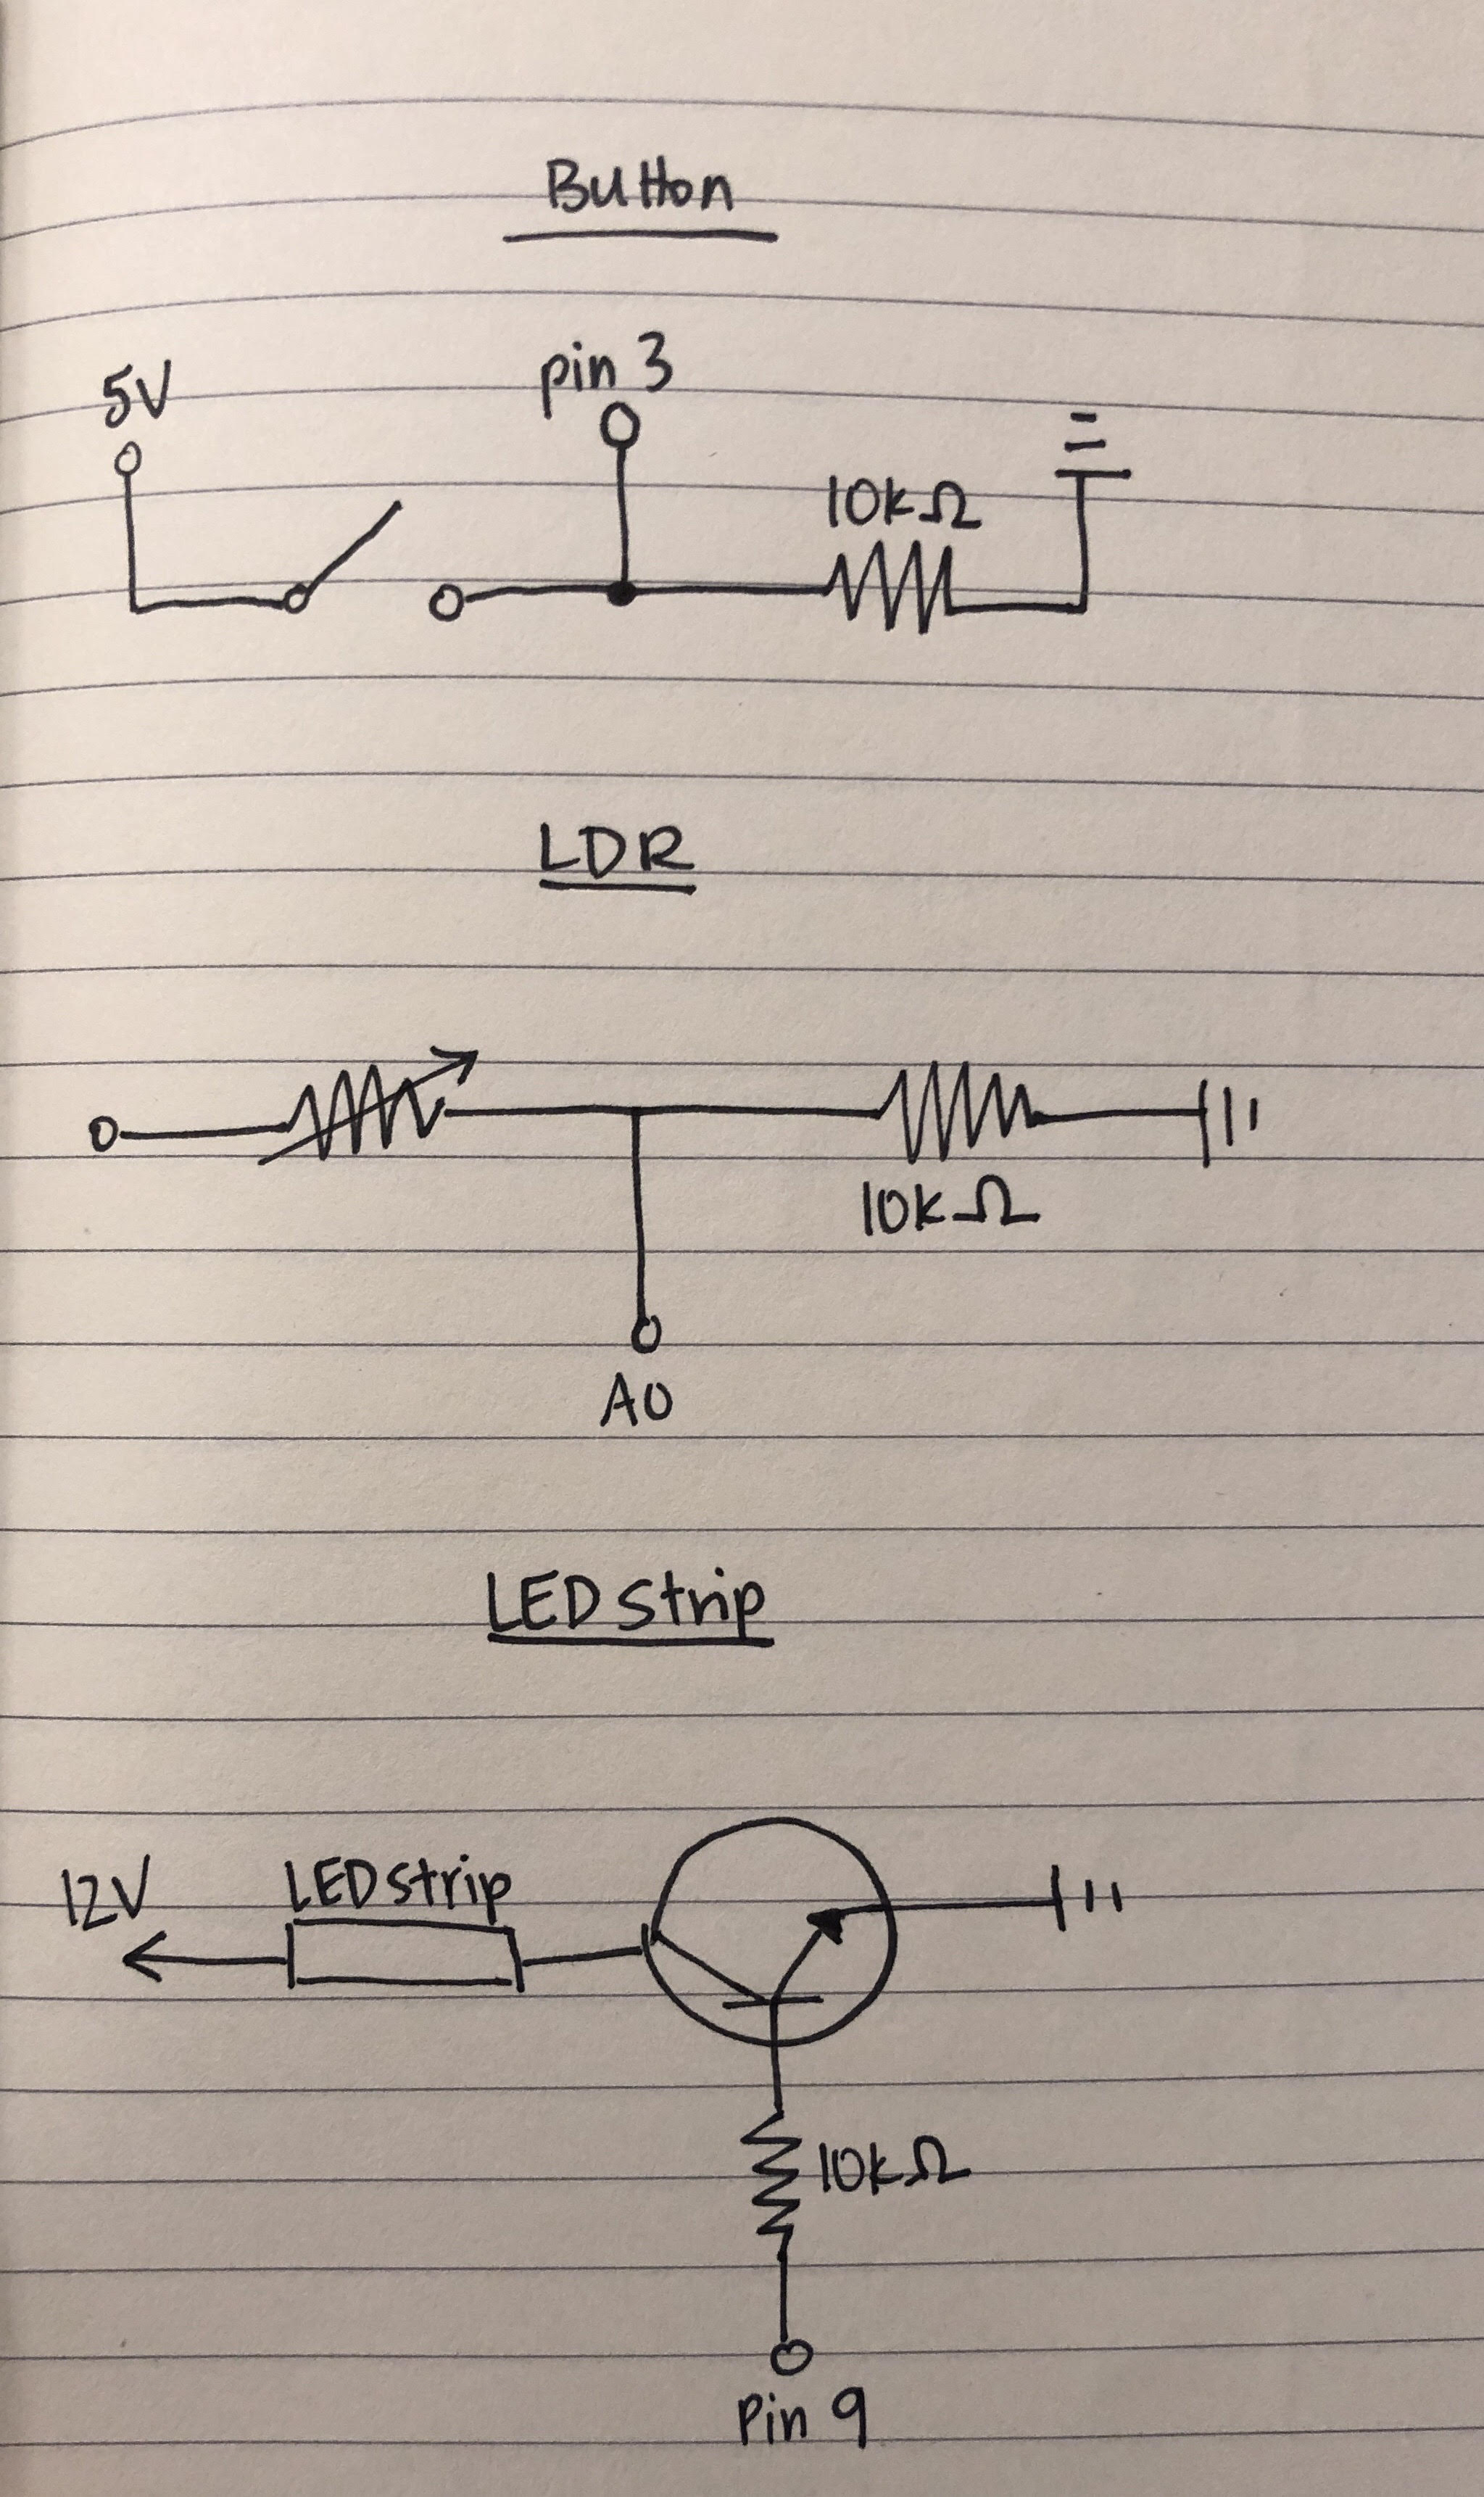 Button
5V
pin 3
10kΩ
LDR
10kΩ
A0
LED Strip
12V
LED strip
10kΩ
Pin 9